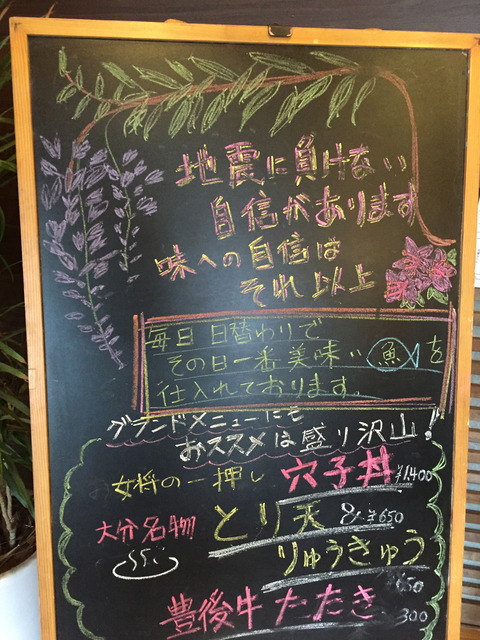 地震に負けない
自信があります
味への自信は
それ以上
毎日 日替わりで
その日一番美味い 魚 を
仕入れております。
グランドメニューにも
おススメは盛り沢山!
お女将の一押し 穴子丼 ¥1,400
大分名物 とり天 ¥650
りゅうきゅう
650
豊後牛たたき